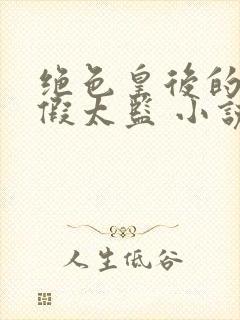 绝色皇後的
假太监 小說
人生低谷